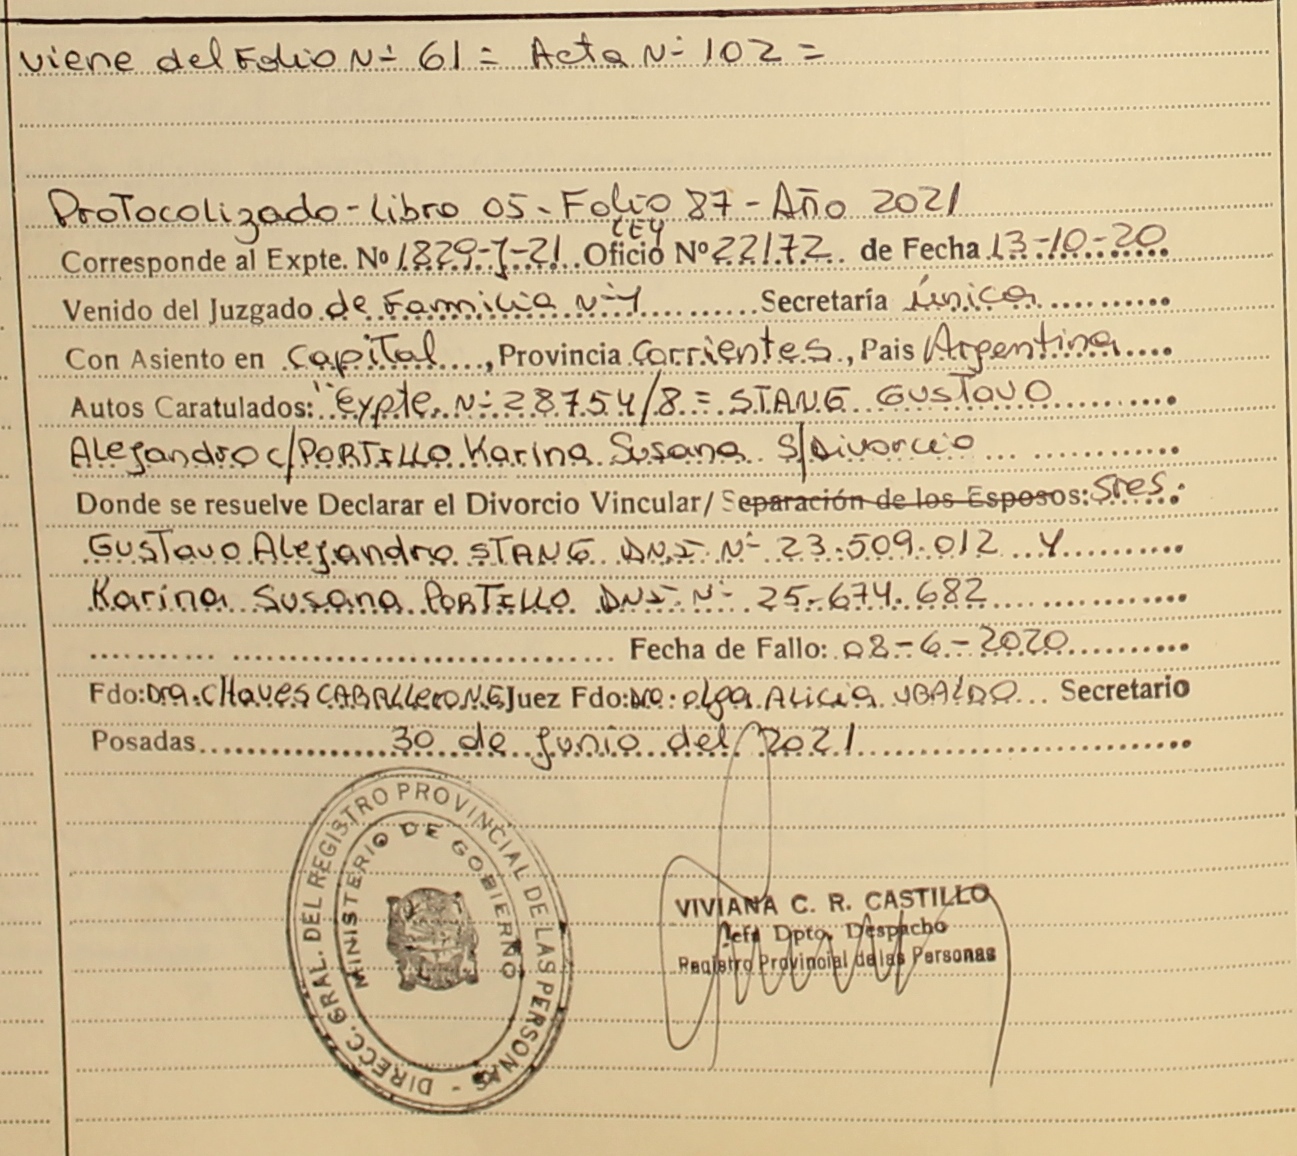 viene del Folio Nº 61 = Acta Nº 102 =
Protocolizado - Libro 05 - Folio 87 - Año 2021
LEY
Corresponde al Expte. Nº 1829-J-21 Oficio Nº 22172 de Fecha 13-10-20
Venido del Juzgado de Familia Nº Secretaría única
Con Asiento en Capital, Provincia Corrientes, Pais Argentina
Autos Caratulados: "Expte. Nº 28754/8 = STANG GUSTAVO
Alejandro c/ PORTILLO Karina Susana S/Divorcio
Donde se resuelve Declarar el Divorcio Vincular/ Separación de los Esposos: Sres.
GUSTAVO Alejandro STANG D.N.I. Nº 23.509.012 Y
Karina Susana PORTILLO DNI. Nº 25.674.682
Fecha de Fallo: 08-6-2020
Fdo: Dra. CHAVES CABALLERO Juez Fdo: Dra. Olga ALICIA UBALDO Secretario
Posadas 30 de junio del 2021
DIRECC. GRAL. DEL REGISTRO PROVINCIAL DE LAS PERSONAS -
MINISTERIO DE GOBIERNO
VIVIANA C. R. CASTILLO
Jefa Dpto. Despacho
Registro Provincial de las Personas